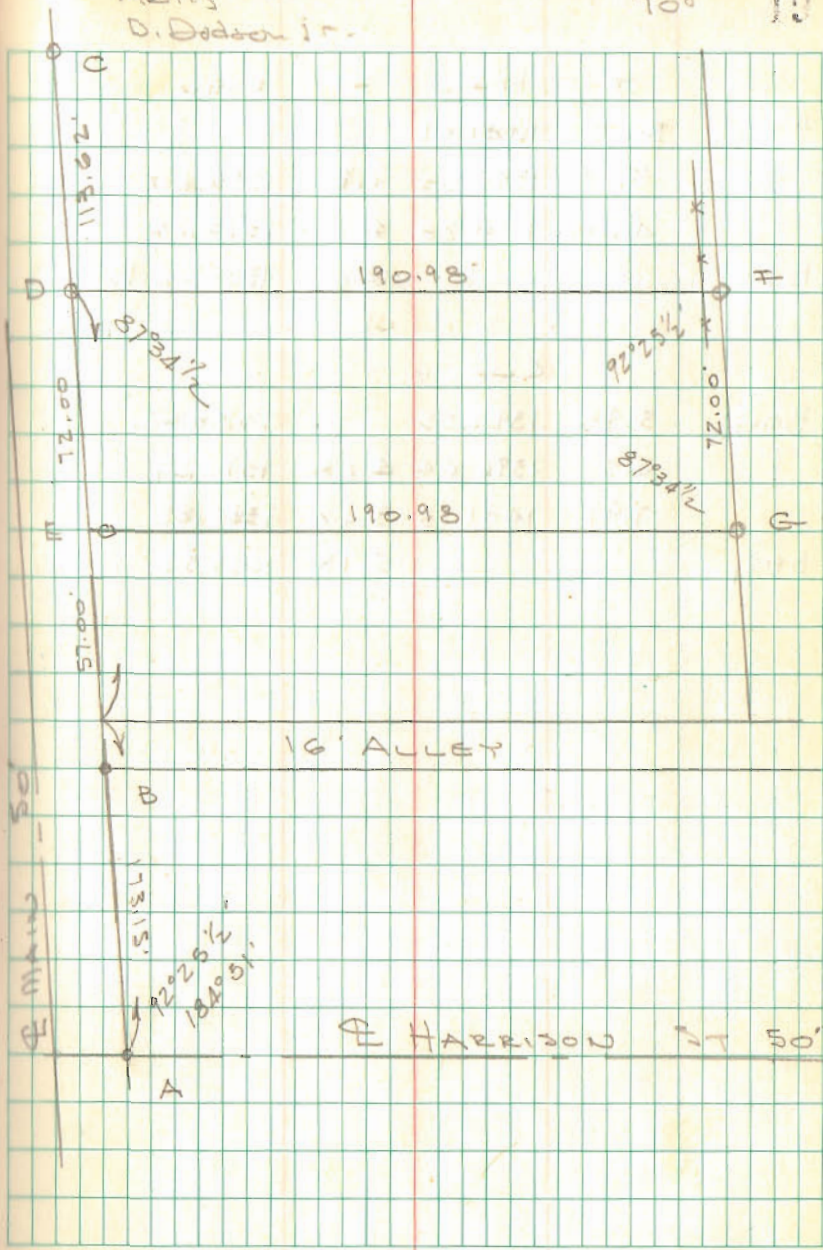 D. Dodson jr.
10°
C
113.62'
D
190.98'
F
87°34'½
92°25½'
72.00
72.00'
87°34'½
E
190.98
G
57.00'
16' ALLEY
B
173.15'
92°25½'
184°51'
℄ MAIN - 50'
℄ HARRISON ST 50'
A